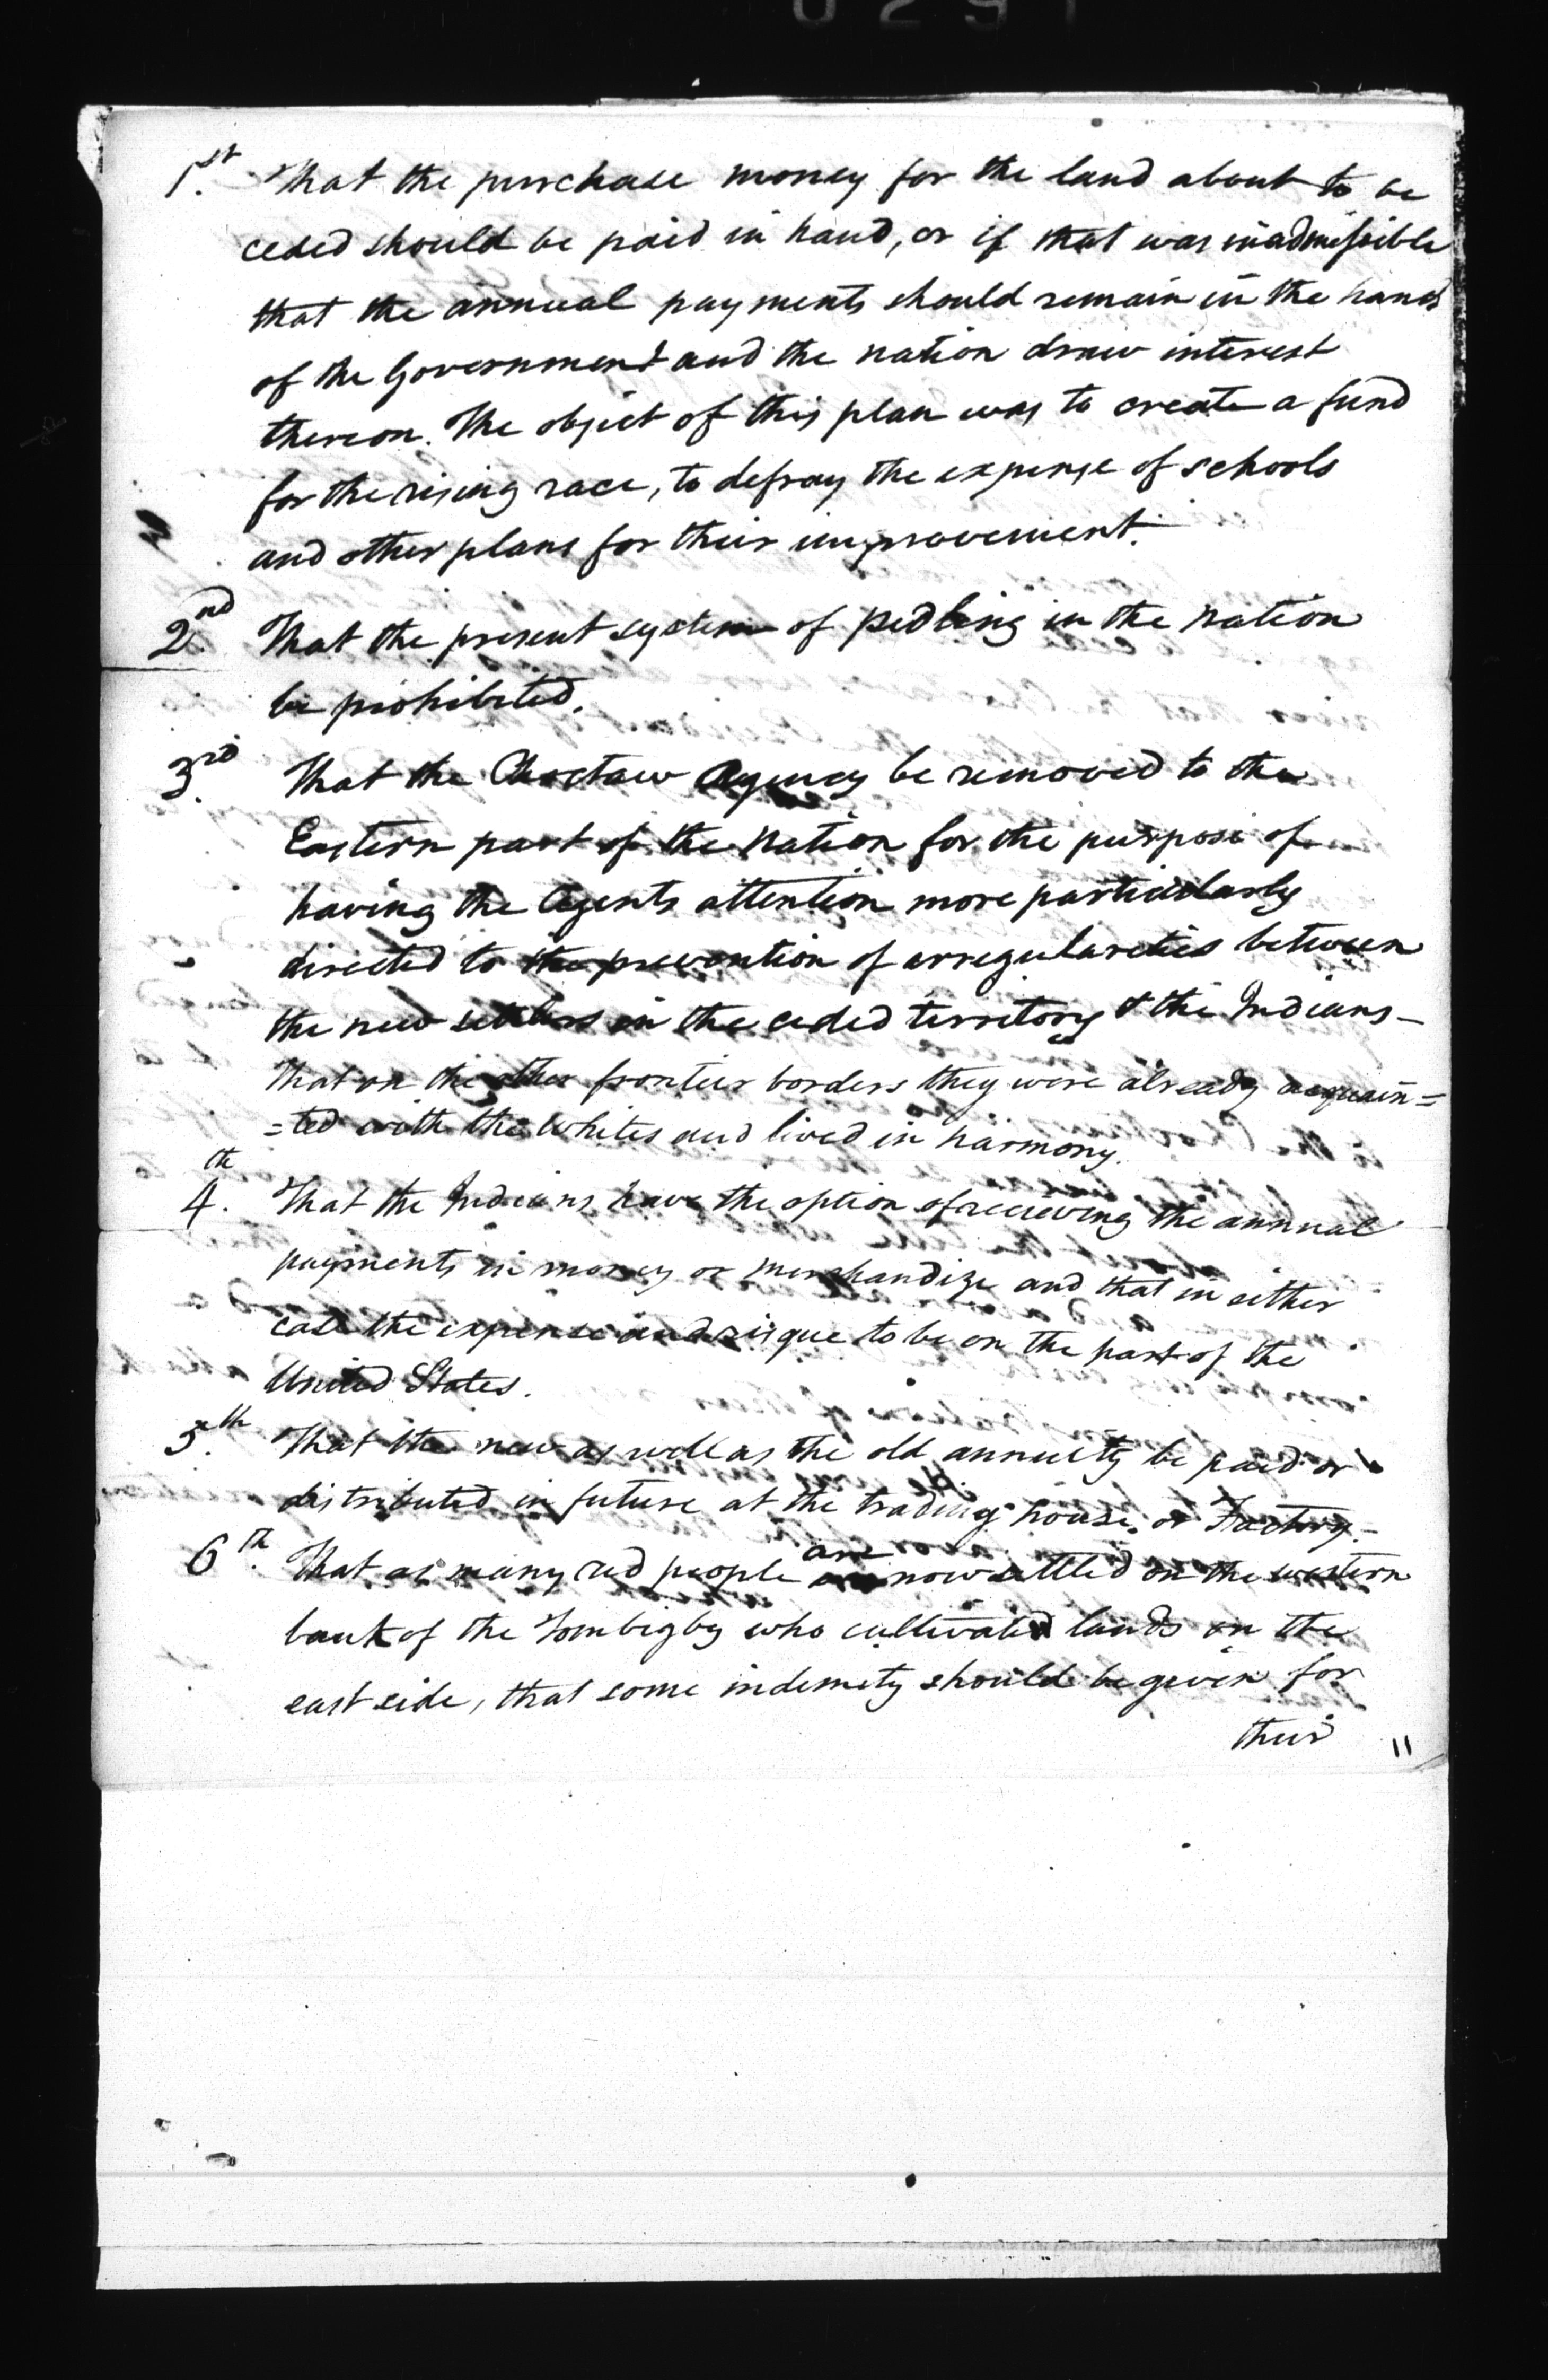 1st. That the purchase money for the land about to be
ceded should be paid in hand, or if that was inadmissible
that the annual payments should remain in the hands
of the Government and the nation draw interest
thereon. The object of this plan was to create a fund
for the rising race, to defray the expense of schools
and other plans for their improvement.
2nd. That the present system of pedling in the nation
be prohibited.
3rd. That the Choctaw Agency be removed to the
Eastern part of the nation for the purpose of
having the Agents attention more particularly
directed to the prevention of irregularities between
the new settlers on the ceded territory & the Indians—
that on the other frontier borders they were already acquain=
=ted with the Whites and lived in harmony.
4th. That the Indians have the option of recieving the annual
payments in money or merchandize and that in either
case the expense and risque to be on the part of the
United States.
5th. That the new as well as the old annuity be paid or
distributed in future at the trading house, or Factory.—
are
6th. That as many red people now settled on the western
bank of the Tombigby who cultivated lands on the
east side, that some indemnity should be given for
their
11